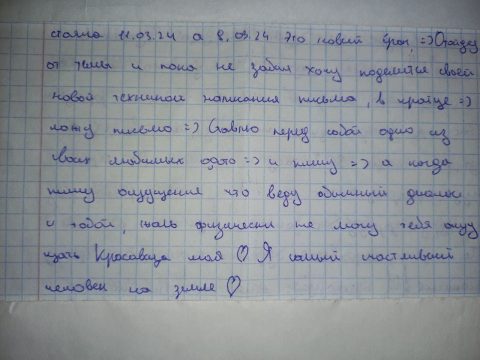 стояна 11.03.24 а 8.03.24 это новый урок, =) Отойду
от темы и пока не забыл хочу поделится своей
новой техникой написания письма, в кратце =)
ложу письмо =) Ставлю перед собой одно из
твоих любимых фото =) и пишу =) а когда
пишу ощущения что веду обычный диалог
с тобой, жаль физически не могу тебя ощу
щать Красавица моя ♡ Я самый счастливый
человек на земле ♡